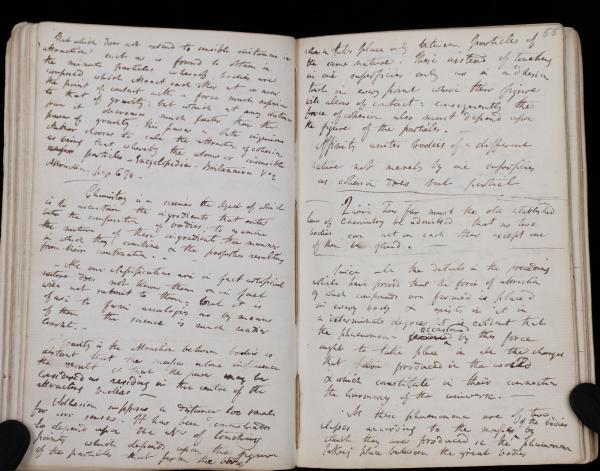 that which does not extend to sensible distances is
attraction such as is found to obtain in
the minute particles whereof bodies are
composed which attract each other at or near
the point of contact with a force much superior
to that of gravity: but which at any distance
from it decreases much faster than the
power of gravity. this power a late ingenious
Author chooses to call the attraction of cohesion
as being that whereby the atoms or insensible
particles - Encyclopedia Britannica Vo 2
Attraction. page 676 -
Chemistry is a science the object of which
is to ascertain the ingredients that enter
into the composition of bodies, to examine
the nature of these ingredients the manner
in which they combine & the properties resulting
from their combination. -
All our classifications are in fact artificial
nature does not know them & in fact
will not submit to them. but it is
of use to form analogies as by means
of them the science is much easier
learnt.
Gravity is the attraction between bodies so
distant that the
the result of that the power may be
considered as residing in the centre of the
attracting bodies -
Adhesion supposes a distance too small
for our senses. It has been considered
to depend upon the No of touching
points which depends upon the figure
of the particles that form the body
55
takes place only between particles of
the same nature. These instead of touching
in one superficies only as in adhesion
but in every point where their figure
will allow of contact: consequently the
force of cohesion also must depend upon
the figure of the particles. -
Affinity unites bodies of a different
nature not merely by one superficies
as cohesion does but particle
How far must the old established
law of chemistry be admitted that no two
bodies can act on each other except one
of them be fluid. -
Since all the details in the preceding
which have proved that the force of attraction
by which compounds are formed is placed
in every body & exists in it in
a determinate degree it is evident that
the phenomena occasioned by this force
ought to take place in all the changes
that are produced in the world
& which constitute in their connection
the harmony of the universe. -
As these phenomena are of two
classes according to the masses of the bodies
which they are produced ie the phenomena
taking place between the great bodies